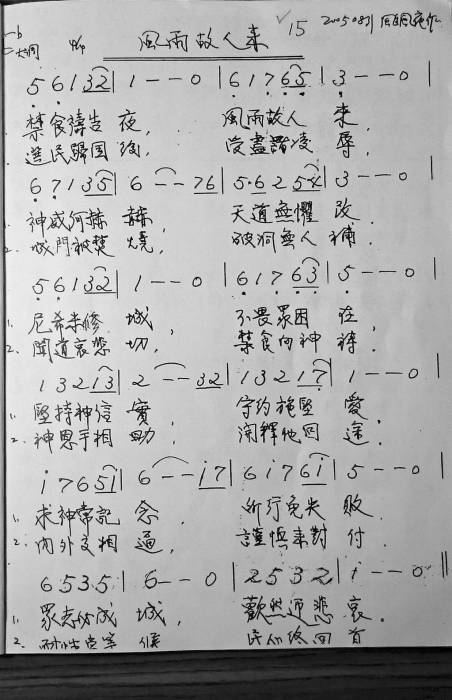 風雨故人来 15 20050831
b
二 大調 4/4
5 6 1 3 2 | 1 - - 0 | 6 1 7 6 5 | 3 - - 0
1. 禁食禱告 夜, 風雨故人 来,
2. 遺民歸国 後, 受盡 凌 辱,
6 7 1 3 5 | 6 - - 7 6 | 5 · 6 2 5 | 3 - - 0
1. 神威何赫 赫, 天道無懼 改.
2. 城門被焚 燒, 破洞無人 補.
5 6 1 3 2 | 1 - - 0 | 6 1 7 6 3 | 5 - - 0
1. 尼希米修 城, 不畏眾困 在,
2. 聞道哀悲 切, 禁食向神 禱.
1 3 2 1 3 | 2 - - 3 2 | 1 3 2 1 7 | 1 - - 0
1. 堅持神信 實, 守約施堅 愛;
2. 神恩手相 助, 開釋他回 途;
i 7 6 5 1 | 6 - - i 7 | 6 i 7 6 i | 5 - - 0
1. 求神常記 念, 所行免失 敗.
2. 內外交相 逼, 謹慎来對 付.
6 5 3 5 | 6 - - 0 | 2 5 3 2 | i - - 0 ||
1. 眾志 成 城, 歡然 悲 哀.
2. 候 民 回 首